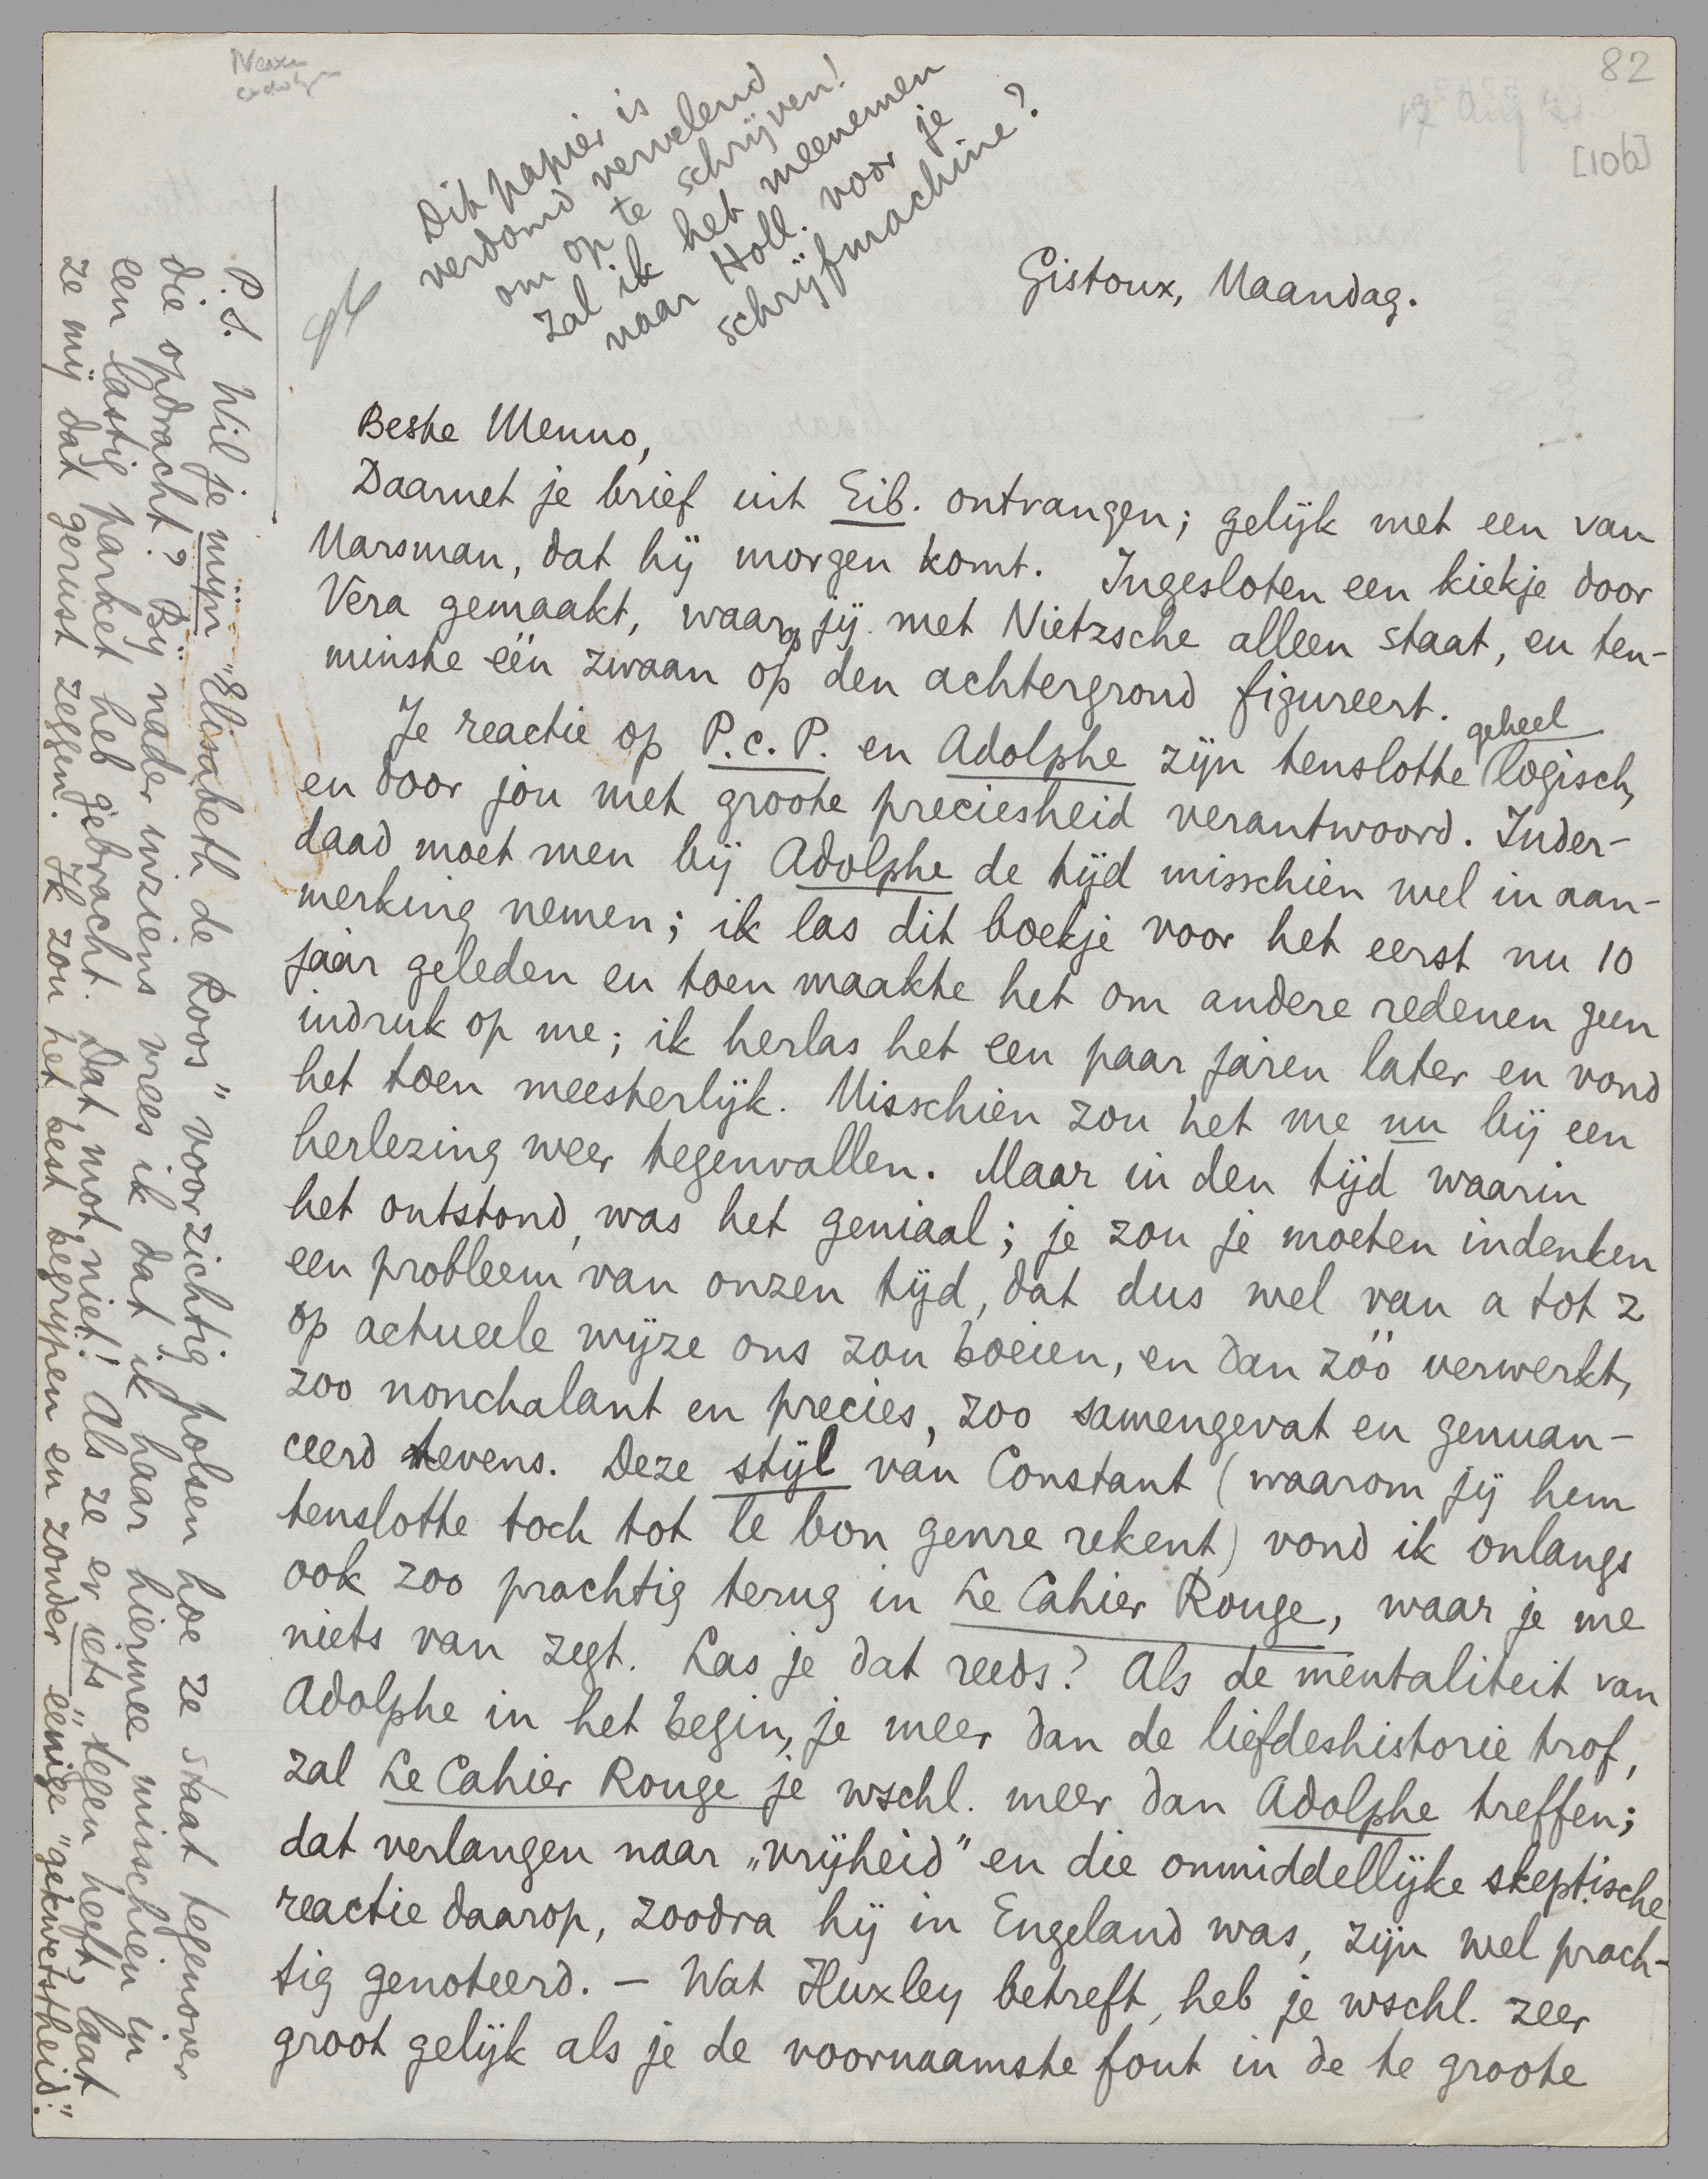 82
[106]
Dit papier is
verdomd vervelend
om op te schrijven!
Zal ik het meenemen
naar Holl. voor je
schrijfmachine?
Gistoux, Maandag.
Beste Menno,
Daarnet je brief uit Eib. ontvangen; gelijk met een van
Marsman, dat hij morgen komt. Ingesloten een kiekje door
Vera gemaakt, waarop jij met Nietzsche alleen staat, en ten-
minste één zwaan op den achtergrond figureert.
Je reactie op P.c.P. en Adolphe zijn tenslotte geheel logisch,
en door jou met groote preciesheid verantwoord. Inder-
daad moet men bij Adolphe de tijd misschien wel in aan-
merking nemen; ik las dit boekje voor het eerst nu 10
jaar geleden en toen maakte het om andere redenen geen
indruk op me; ik herlas het een paar jaren later en vond
het toen meesterlijk. Misschien zou het me nu bij een
herlezing weer tegenvallen. Maar in den tijd waarin
het ontstond, was het geniaal; je zou je moeten indenken
een probleem van onzen tijd, dat dus wel van a tot z
op actueele wijze ons zou boeien, en dan zóó verwerkt,
zoo nonchalant en precies, zoo samengevat en genuan-
ceerd tevens. Deze stijl van Constant (waarom jij hem
tenslotte toch tot le bon genre rekent) vond ik onlangs
ook zoo prachtig terug in Le Cahier Rouge, waar je me
niets van zegt. Las je dat reeds? Als de mentaliteit van
Adolphe in het begin, je meer dan de liefdeshistorie trof,
zal Le Cahier Rouge je wschl. meer dan Adolphe treffen;
dat verlangen naar „vrijheid" en die onmiddellijke skeptische
reactie daarop, zoodra hij in Engeland was, zijn wel prach-
tig genoteerd. – Wat Huxley betreft, heb je wschl. zeer
groot gelijk als je de voornaamste fout in de te groote
P.S. Wil je mijn „Elisabeth de Roos" voorzichtig polsen hoe ze staat tegenover
die opdracht? Bij nader inziens vrees ik dat ik haar hiermee misschien in
een lastig parket heb gebracht. Dat mot niet! Als ze er iets „tegen heeft", laat
ze mij dat gerust zeggen. Ik zou het best begrijpen en zonder eenige "gekwetstheid".